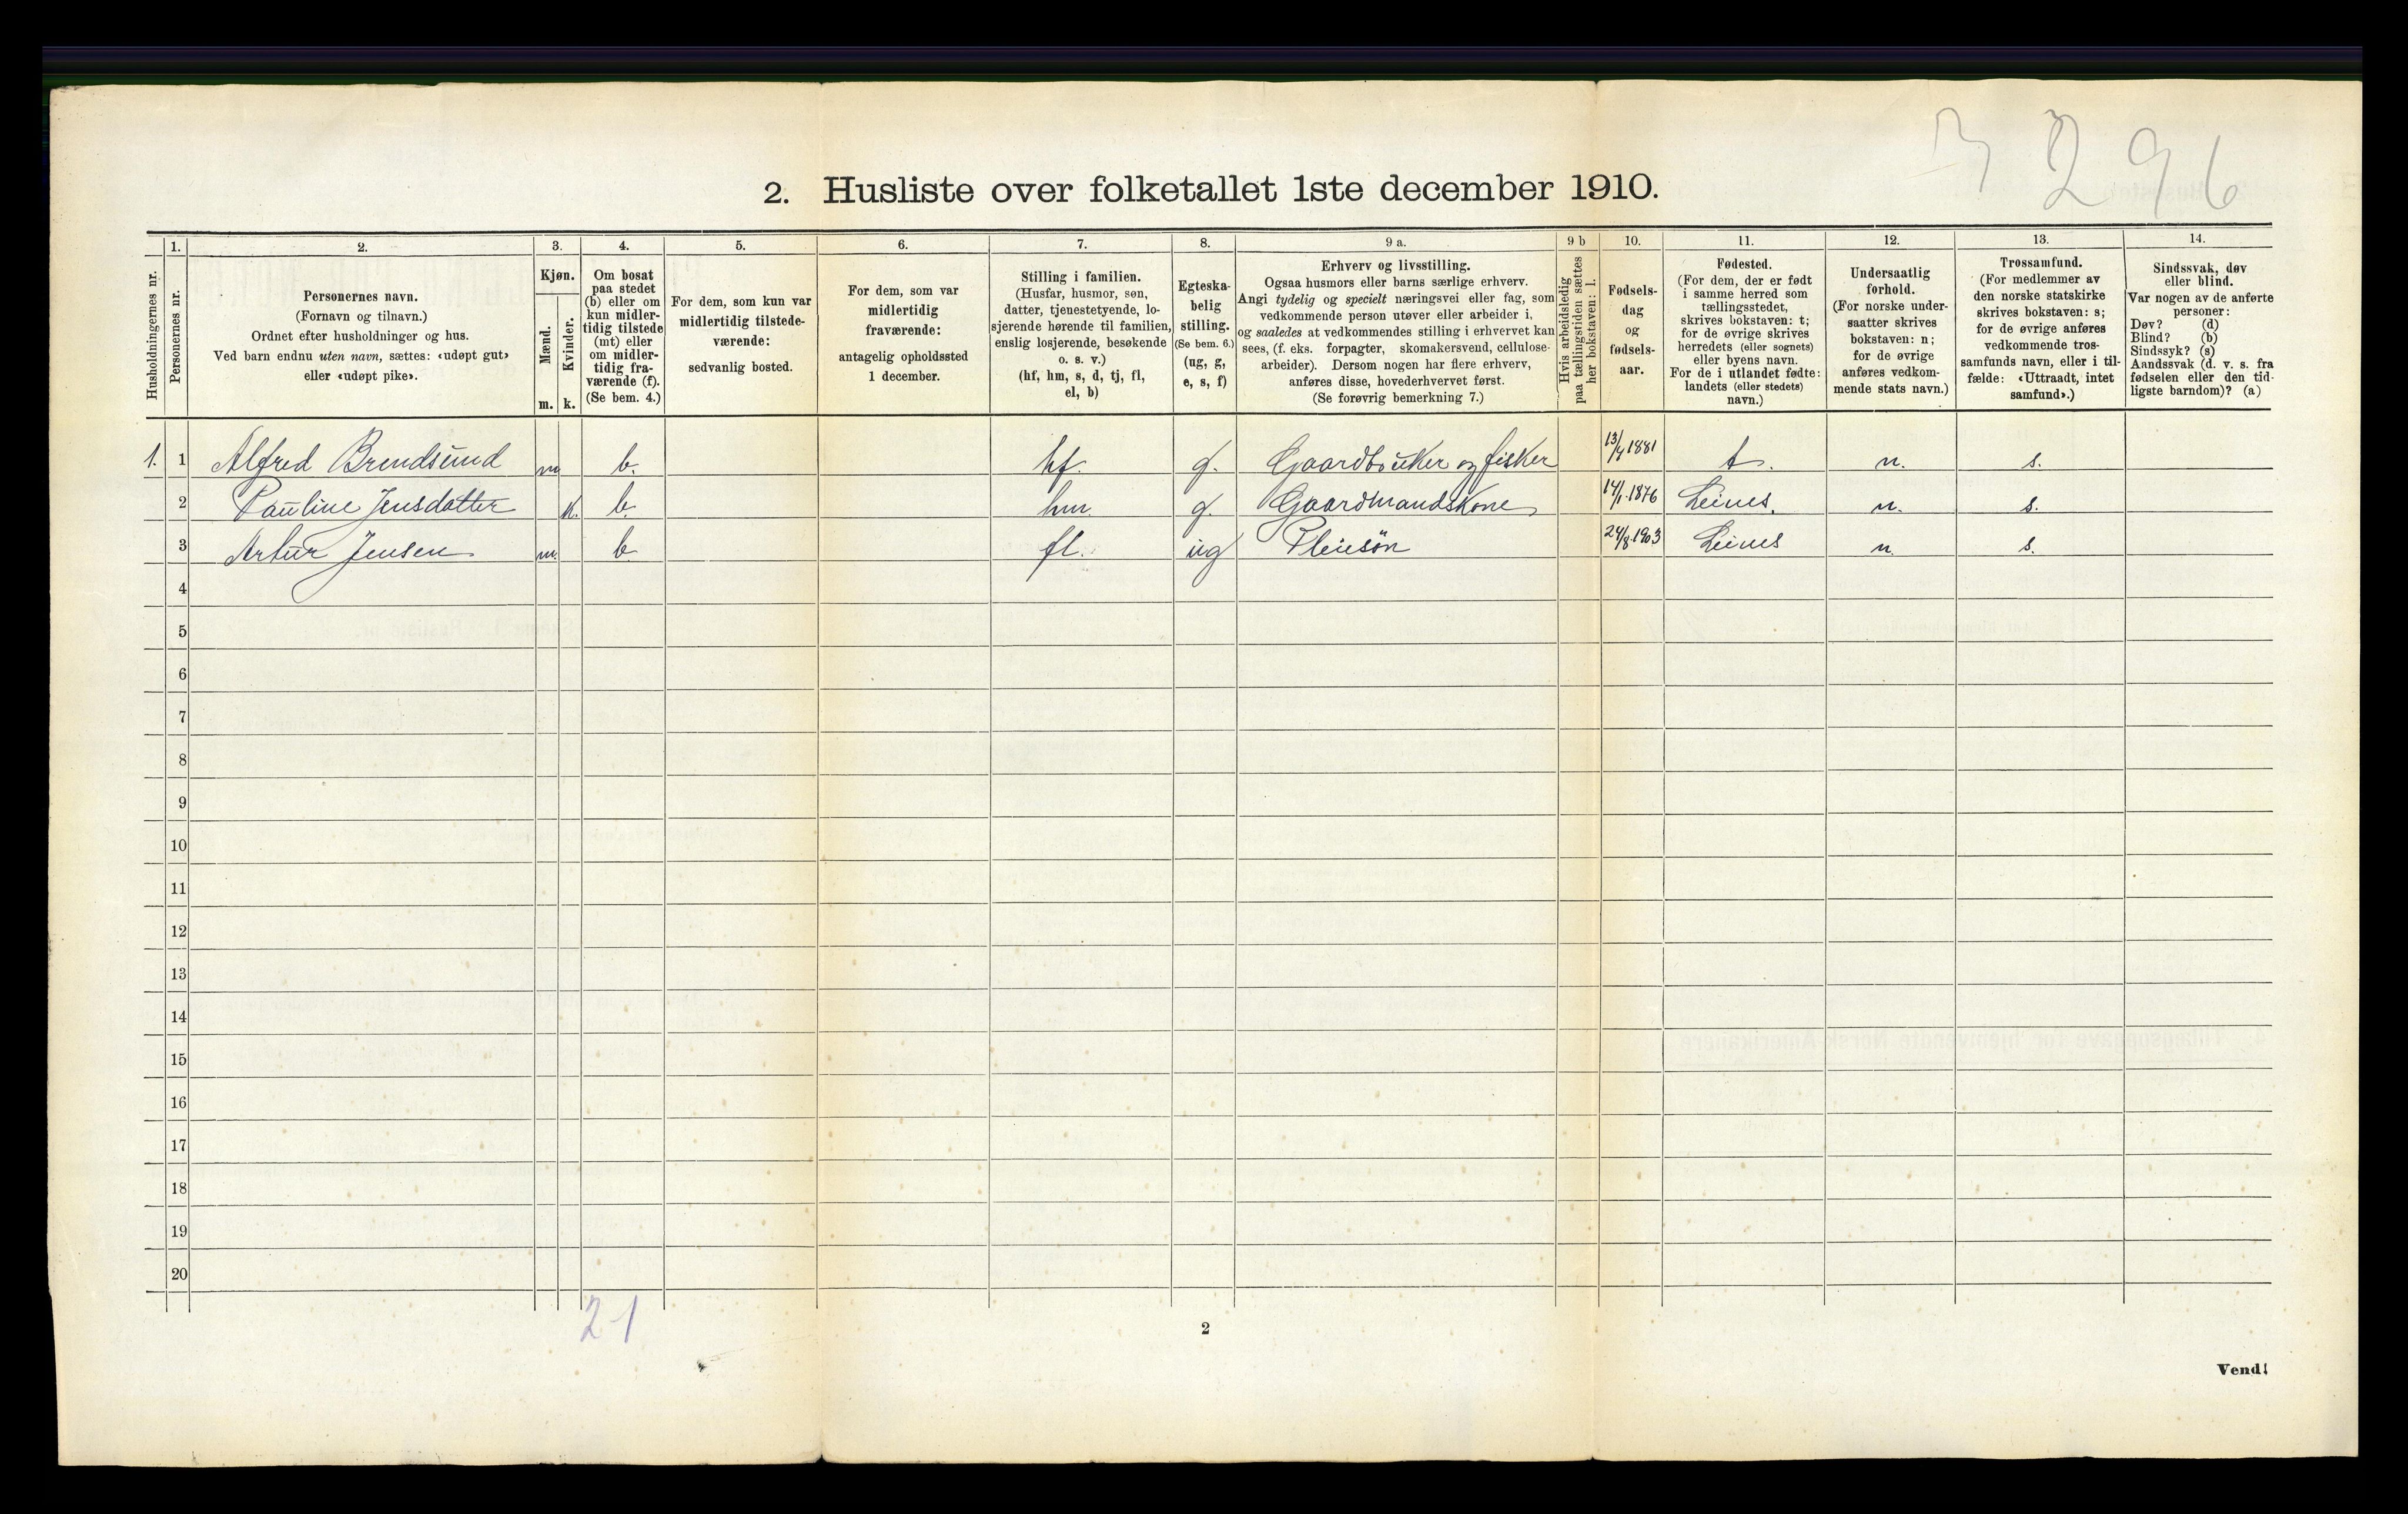 3 296
2. Husliste over folketallet 1ste december 1910.
1. 2. 3. 4. 5. 6. 7. 8. 9 a. 9 b 10. 11. 12. 13. 14.
Husholdningernes nr.
Personernes nr.
Personernes navn.
(Fornavn og tilnavn.)
Ordnet efter husholdninger og hus.
Ved barn endnu uten navn, sættes: «udøpt gut»
eller «udøpt pike».
Kjøn.
Mænd.
m.
Kvinder.
k.
Om bosat
paa stedet
(b) eller om
kun midler-
tidig tilstede
(mt) eller
om midler-
tidig fra-
værende (f).
(Se bem. 4.)
For dem, som kun var
midlertidig tilstede-
værende:
sedvanlig bosted.
For dem, som var
midlertidig
fraværende:
antagelig opholdssted
1 december.
Stilling i familien.
(Husfar, husmor, søn,
datter, tjenestetyende, lo-
sjerende hørende til familien,
enslig losjerende, besøkende
o. s. v.)
(hf, hm, s, d, tj, fl,
el, b)
Egteska-
belig
stilling.
(Se bem. 6.)
(ug, g,
e, s, f)
Erhverv og livsstilling.
Ogsaa husmors eller barns særlige erhverv.
Angi tydelig og specielt næringsvei eller fag, som
vedkommende person utøver eller arbeider i,
og saaledes at vedkommendes stilling i erhvervet kan
sees, (f. eks. forpagter, skomakersvend, cellulose-
arbeider). Dersom nogen har flere erhverv,
anføres disse, hovederhvervet først.
(Se forøvrig bemerkning 7.)
Hvis arbeidsledig
paa tællingstiden sættes
her bokstaven: l.
Fødsels-
dag
og
fødsels-
aar.
Fødested.
(For dem, der er født
i samme herred som
tællingsstedet,
skrives bokstaven: t;
for de øvrige skrives
herredets (eller sognets)
eller byens navn.
For de i utlandet fødte:
landets (eller stedets)
navn.)
Undersaatlig
forhold.
(For norske under-
saatter skrives
bokstaven: n;
for de øvrige
anføres vedkom-
mende stats navn.)
Trossamfund.
(For medlemmer av
den norske statskirke
skrives bokstaven: s;
for de øvrige anføres
vedkommende tros-
samfunds navn, eller i til-
fælde: «Uttraadt, intet
samfund».)
Sindssvak, døv
eller blind.
Var nogen av de anførte
personer:
Døv? (d)
Blind? (b)
Sindssyk? (s)
Aandssvak (d. v. s. fra
fødselen eller den tid-
ligste barndom)? (a)
1. 1 Alfred Brendsund m b. hf. g. Gaardbruker og fisker 13/4 1881 t. n. s.
2 Pauline Jensdatter k. b. hm g. Gaardmandskone 14/1 1876 Leines. n. s.
3 Artur Jensen m. b fl. ug Pleiesøn 24/8 1903 Leines n. s.
4
5
6
7
8
9
10
11
12
13
14
15
16
17
18
19
20
2-1
2
Vend!